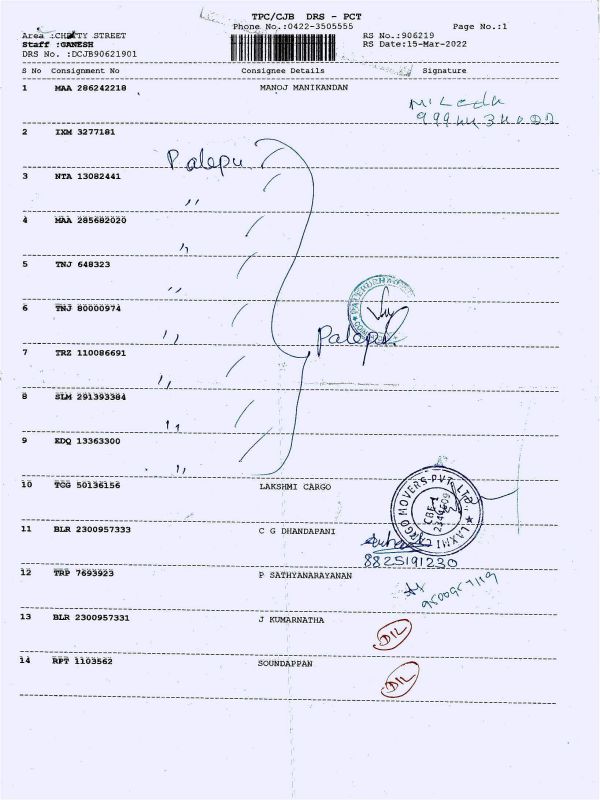 TPC/CJB DRS - PCT
Phone No.:0422-3505555 Page No.:1
Area :CHETTY STREET RS No.:906219
Staff :GANESH RS Date:15-Mar-2022
DRS No. :DCJB90621901
S No Consignment No Consignee Details Signature
1 MAA 286242218 MANOJ MANIKANDAN
2 IXM 3277181
Palepu
3 NTA 13082441
"
4 MAA 285682020
"
5 TNJ 648323
"
6 TNJ 80000974
"
Palepu
7 TRZ 110086691
"
8 SLM 291393384
"
9 EDQ 13363300
"
10 TCG 50136156 LAKSHMI CARGO
LAXMI CARGO MOVERS PVT. LTD.
11 BLR 2300957333 C G DHANDAPANI
8825191230
12 TRP 7693923 P SATHYANARAYANAN
13 BLR 2300957331 J KUMARNATHA
DIL
14 RPT 1103562 SOUNDAPPAN
DIL